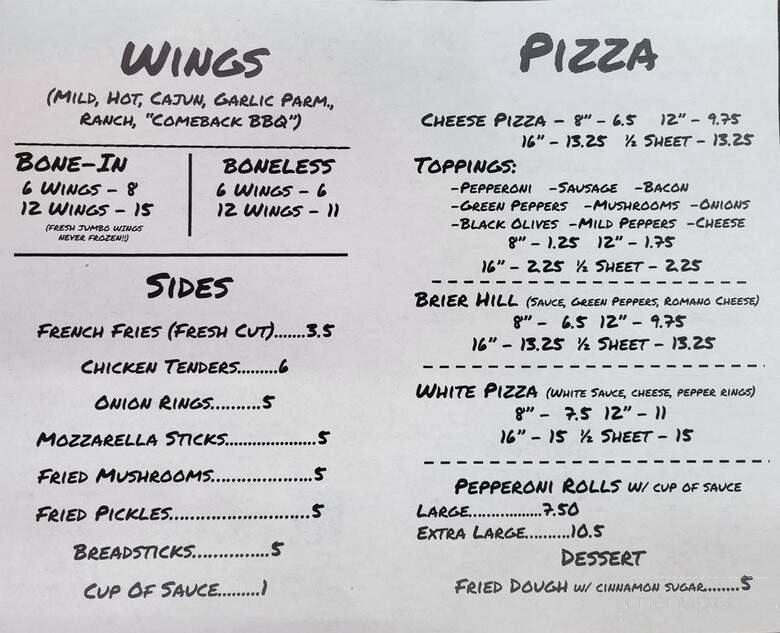 WINGS
(MILD, HOT, CAJUN, GARLIC PARM.,
RANCH, "COMEBACK BBQ")
BONE-IN
6 WINGS - 8
12 WINGS - 15
(FRESH JUMBO WINGS
NEVER FROZEN!!)
BONELESS
6 WINGS - 6
12 WINGS - 11
SIDES
FRENCH FRIES (FRESH CUT).......3.5
CHICKEN TENDERS.........6
ONION RINGS..........5
MOZZARELLA STICKS.....................5
FRIED MUSHROOMS.......................5
FRIED PICKLES................................5
BREADSTICKS..............5
CUP OF SAUCE.........1
PIZZA
CHEESE PIZZA - 8" - 6.5 12" - 9.75
16" - 13.25 ½ SHEET - 13.25
TOPPINGS:
-PEPPERONI -SAUSAGE -BACON
-GREEN PEPPERS -MUSHROOMS -ONIONS
-BLACK OLIVES -MILD PEPPERS -CHEESE
8" - 1.25 12" - 1.75
16" - 2.25 ½ SHEET - 2.25
BRIER HILL (SAUCE, GREEN PEPPERS, ROMANO CHEESE)
8" - 6.5 12" - 9.75
16" - 13.25 ½ SHEET - 13.25
WHITE PIZZA (WHITE SAUCE, CHEESE, PEPPER RINGS)
8" - 7.5 12" - 11
16" - 15 ½ SHEET - 15
PEPPERONI ROLLS W/ CUP OF SAUCE
LARGE.................7.50
EXTRA LARGE..........10.5
DESSERT
FRIED DOUGH W/ CINNAMON SUGAR........5